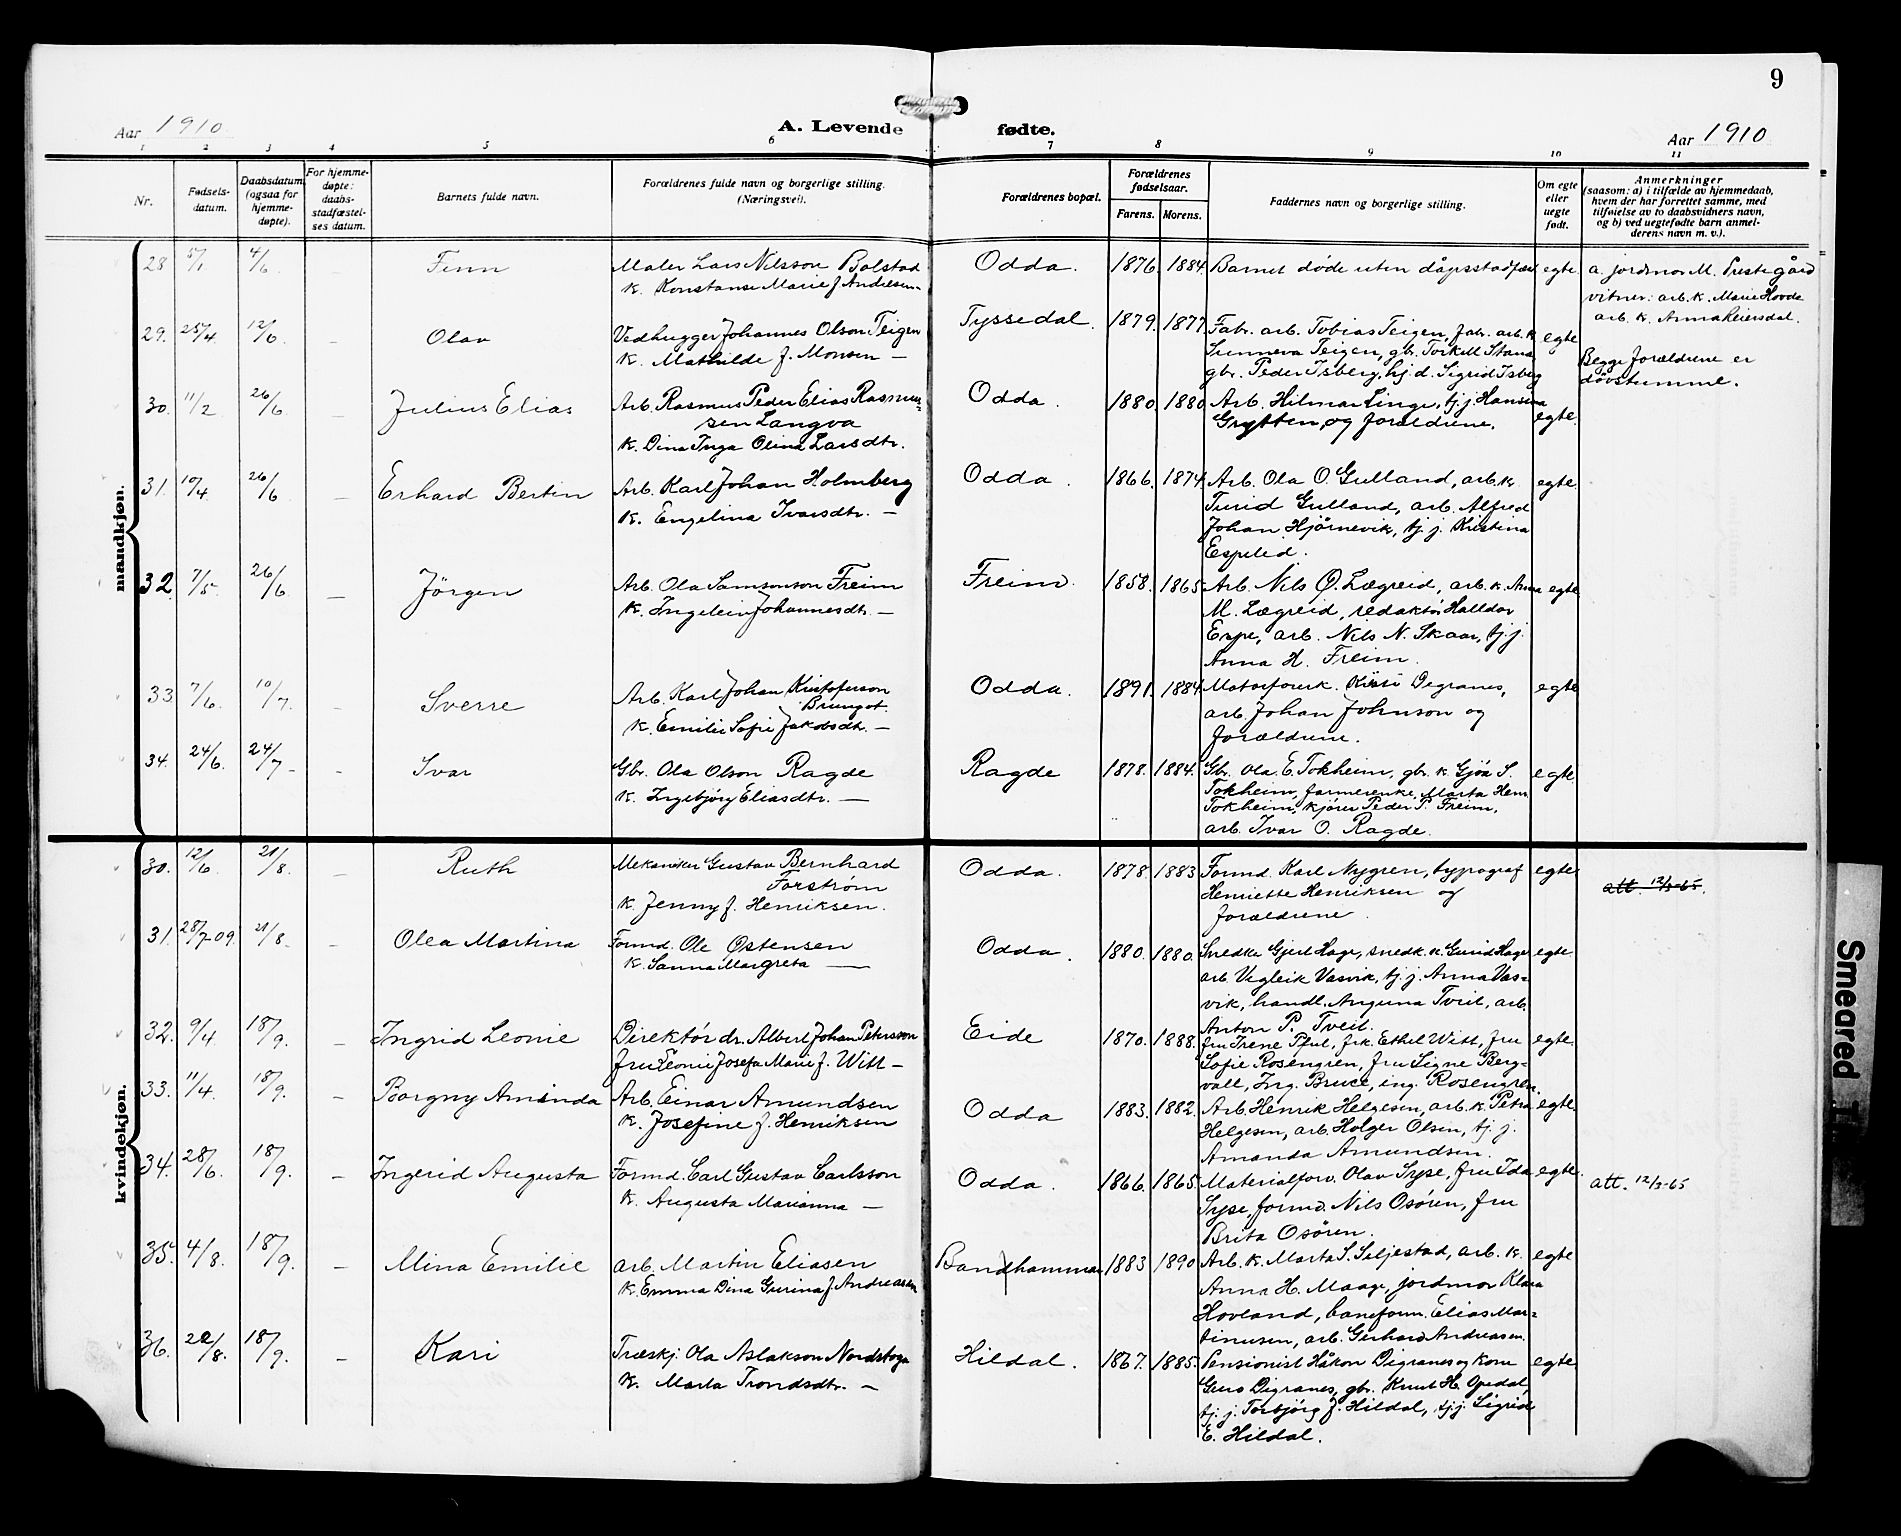 9
Aar 1910
A. Levende fødte.
Aar 1910
1 2 3 4 5 6 7 8 9 10 11
Nr.
Fødsels-
datum.
Daabsdatum
(ogsaa for
hjemme-
døpte).
For hjemme-
døpte:
daabs-
stadfæstel-
ses datum.
Barnets fulde navn.
Forældrenes fulde navn og borgerlige stilling.
(Næringsvei).
Forældrenes bopæl.
Forældrenes
fødselsaar.
Farens. Morens.
Faddernes navn og borgerlige stilling.
Om egte
eller
uegte
født.
Anmerkninger
(saasom: a) i tilfælde av hjemmedaab,
hvem der har forrettet samme, med
tilføielse av to daabsvidners navn,
og b) ved uegtefødte barn anmel-
derens navn m. v.).
mandkjøn.
28 5/1 4/6 – Finn
Maler Lars Nilsson Bolstad
k. Konstanse Marie f. Andresen –
Odda. 1876. 1884. Barnet døde uten dåpsstadfæst egte
a. jordmor M. Prestegård
vitner: arb. k. Marie Hovde
arb. k. Anna Reiersdal.
29. 25/4 12/6 – Olav
Vedhugger Johannes Olson Teigen
k. Mathilde f. Monsen –
Tyssedal. 1879. 1877.
Fabr. arb. Tobias Teigen, fabr. arb. k.
Sunneva Teigen, gbr. Torkell Stana
gbr. Peder Isberg, hj. d. Sigrid Isberg
egte
Begge forældrene er
døvstumme.
30. 11/2 26/6 – Julius Elias
Arb. Rasmus Peder Elias Rasmus-
sen Langva
k. Dina Inga Olina Larsdtr.
Odda. 1880. 1880.
Arb. Hilmar Linge, tj. j. Hansina
Grytten, og forældrene.
egte.
31. 10/4. 26/6 – Erhard Bertin
Arb. Karl Johan Holmberg
k. Engelina Ivarsdtr. –
Odda. 1866. 1874.
Arb. Ola O. Gulland, arb. k.
Turid Gulland, arb. Alfred
Johan Hjørnevik, tj. j. Kristina
Espelid.
egte.
32. 7/5. 26/6 – Jörgen
Arb. Ola Samsonson Freim
k. Ingeleiv Johannesdtr. –
Freim. 1858. 1865.
Arb. Nils O. Lægreid, arb. k. Anna
M. Lægreid, redaktör Halldor
Espe, arb. Nils N. Skaar, tj. j.
Anna H. Freim.
egte
33 7/6. 10/7. – Sverre
Arb. Karl Johan Kristoferson
Brungot.
k. Emilie Sofie Jakobsdtr. –
Odda. 1891. 1884.
Digranes,
arb. Johan Johnson og
forældrene.
egte
34. 24/6. 24/7 – – Ivar
Gbr. Ola Olson Ragde
k. Ingebjörg Eliasdtr. –
Ragde 1878. 1884.
Gbr. Ola E. Tokheim, gbr. k. Gjöa S.
Tokheim, farmerenke, Marta Hem
Tokheim, kjörer Peder P. Freim,
arb. Ivar O. Ragde.
egte.
kvindekjøn.
30. 12/6 21/8. – Ruth
Mekaniker Gustav Bernhard
Forström
k. Jenny f. Henriksen.
Odda. 1878. 1883
Formd. Karl Nygren, typograf
Henriette Henriksen og
forældrene.
egte
att. 12/3-65.
31. 28/7-09. 21/8. – Olea Martina
Formd. Ole Östensen
k. Sanna Margreta –
Odda. 1880. 1880.
Snedker Gjert Hage, snedk. k. Gunid Hage
arb. Vegleik Vasvik, tj. j. Anna Vas-
vik, handl. Tveit, arb.
Anton P. Tveit.
egte.
32. 9/4 18/9. – Ingrid Leonie
Direktör dr. Albert Johan Petersson
fru Leonie Josefa Marie f. Witt –
Eide 1870. 1888.
fru Irene Pful, frk. Ethel Witt, fru
Sofie Rosengren, fru Signe Berg-
vall, Ing. Bruce, ing. Rosengren.
egte.
33. 11/4. 18/9. – Borgny Aminda
Arb. Einar Amundsen
k. Josefine f. Henriksen
Odda 1883. 1882.
Arb. Henrik Helgesen, arb. k. Petra
Helgesen, arb. Holger Olsen, tj. j.
Amanda Amundsen.
egte.
34. 28/6. 18/9. – Ingerid Augusta
Formd. Carl Gustav Carlsson
k. Augusta Marianna –
Odda. 1866. 1865.
Materialforv. Olav Syse, fru Ida
Syse, formd. Nils Osören, fru
Brita Osören.
egte.
att. 12/3-65
35. 4/8. 18/9. – Mina Emilie
arb. Martin Eliasen
k. Emma Dina Gurina f. Andreasen
Bandhammar 1883 1890
Arb. k. Marta S. Seljestad, arb. k.
Anna H. Maage, jordmor Klara
Hovland, baneform. Elias Mar-
tinusen, arb. Gerhard Andreasen.
egte
36. 20/8. 18/9. – Kari
Træskj. Ola Aslakson Nordstoga
k. Marta Trondsdtr. –
Hildal. 1867. 1885.
Pensionist Håkon Digranes og kone
Guro Digranes, gbr. Knut H. Opedal,
tj. j. Torbjörg J. Hildal, tj. j. Sigrid
E. Hildal.
egte
Smeared